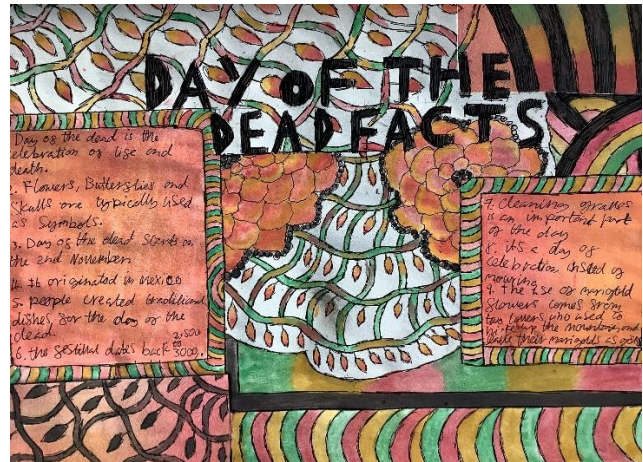 DAY OF THE
DEAD FACTS
Day of the dead is the
celebration of life and
death.
Flowers, Butterflies and
skulls are typically used
as symbols.
3. Day of the dead starts on
the 2nd November.
4. It originated in mexico
5. people created traditional
dishes, for the day of the
dead.
6. the festival dates back 3000.
7. Cleaning graves
is an important part
of the day
8. its a day of
celebration insted of
mourning
9. The use of marigold
flowers comes from
two lovers, who used to
hike up the mountain and
leave their marigolds as